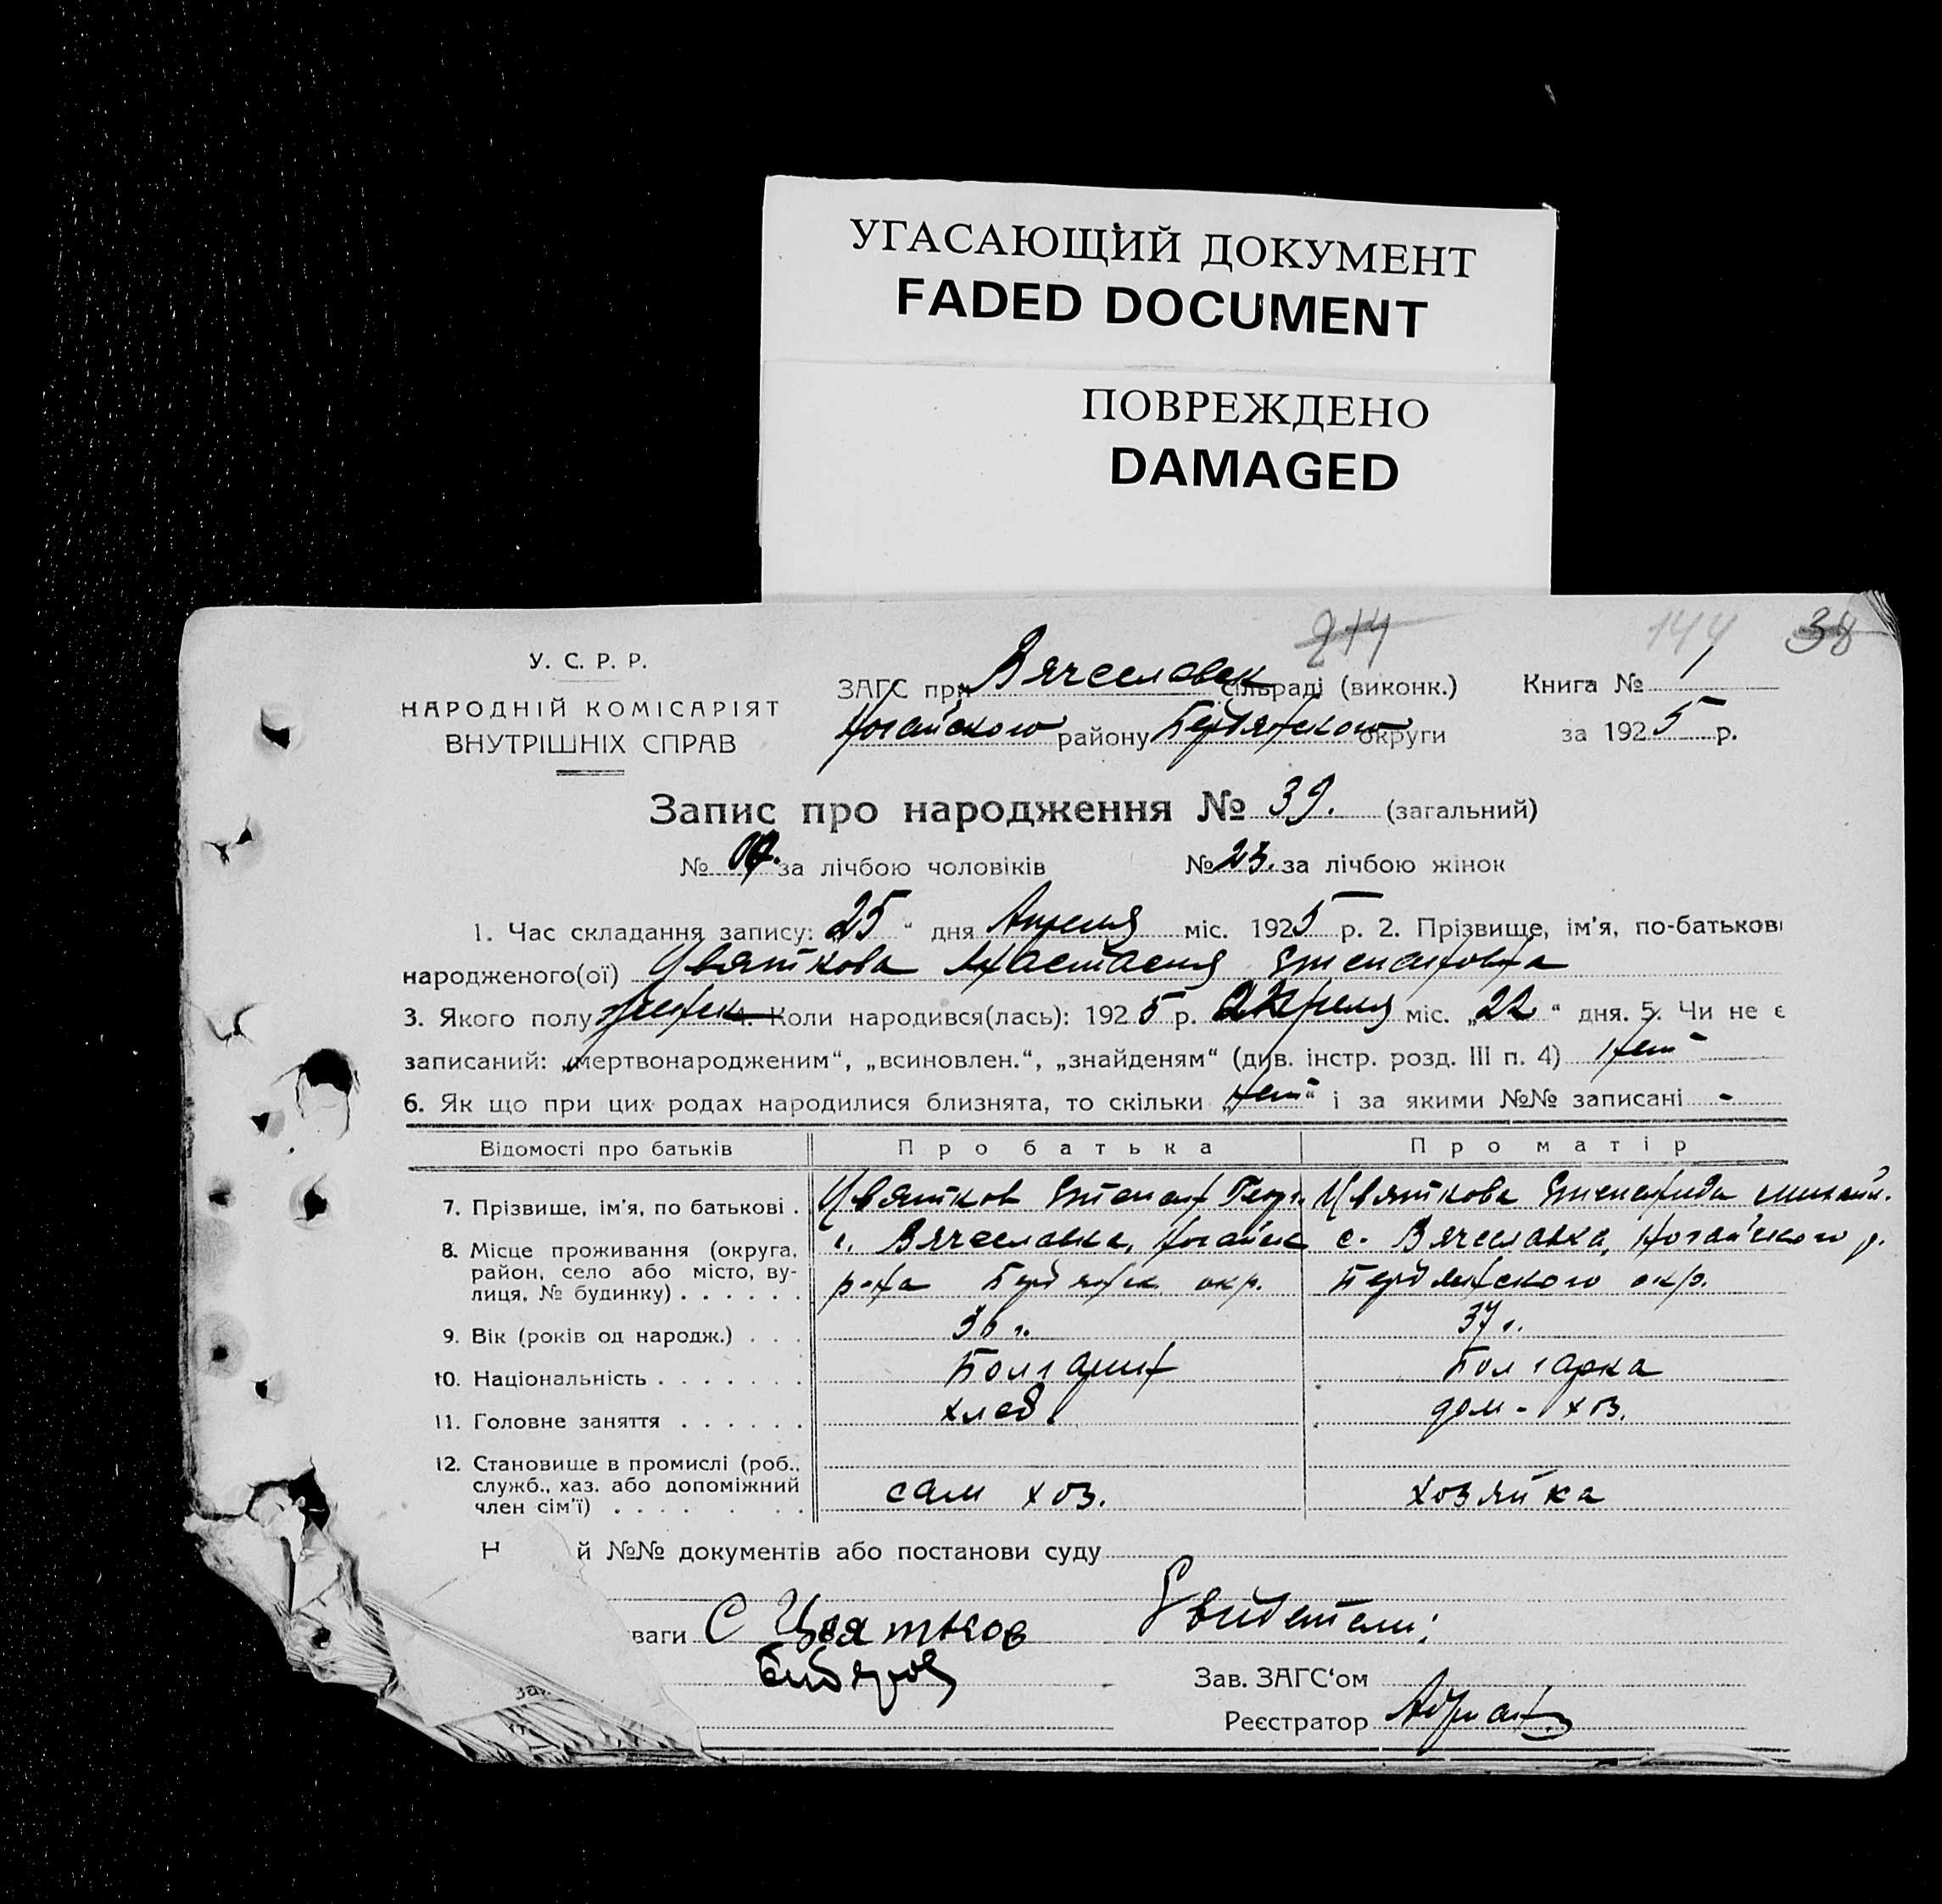 УГАСАЮЩИЙ ДОКУМЕНТ
FADED DOCUMENT
ПОВРЕЖДЕНО
DAMAGED
214 144 38
У. С. Р. Р.
НАРОДНІЙ КОМІСАРІЯТ
ВНУТРІШНІХ СПРАВ
ЗАГС при Вячеславск сільраді (виконк.) Книга № 1
Ногайского району Бердянского округи за 1925 р.
Запис про народження № 39. (загальний)
№ за лічбою чоловіків № 23. за лічбою жінок
1. Час складання запису: „25“ дня Апреля міс. 1925 р. 2. Прізвище, ім'я, по-батькові
народженого(ої) Цвяткова Анастасия Степановна
3. Якого полу женск 4. Коли народився(лась): 1925 р. апреля міс. „22“ дня. 5. Чи не є
записаний: „мертвонародженим“, „всиновлен.“, „знайденям“ (див. інстр. розд. III п. 4) нет
6. Як що при цих родах народилися близнята, то скільки „нет“ і за якими №№ записані -
Відомості про батьків Про батька Про матір
7. Прізвище, ім'я, по батькові . Цвятков Степан Георг. Цвяткова Степанида михайл.
8. Місце проживання (округа, район, село або місто, вулиця, № будинку) . . . . . . с. Вячеславка, Ногайск р-на Бердянск окр. с. Вячеславка, Ногайского р. Бердянского окр.
9. Вік (років од народж.) . . . 36 г. 37 г.
10. Національність . . . . . . . Болгарин Болгарка
11. Головне заняття . . . . . . хлеб. дом-хоз.
12. Становище в промислі (роб., служб., хаз. або допоміжний член сім'ї) . . . . . . . сам хоз. хозяйка
Н й №№ документів або постанови суду
ваги С Цвятков Свидетели:
Зав. ЗАГС'ом
Реєстратор